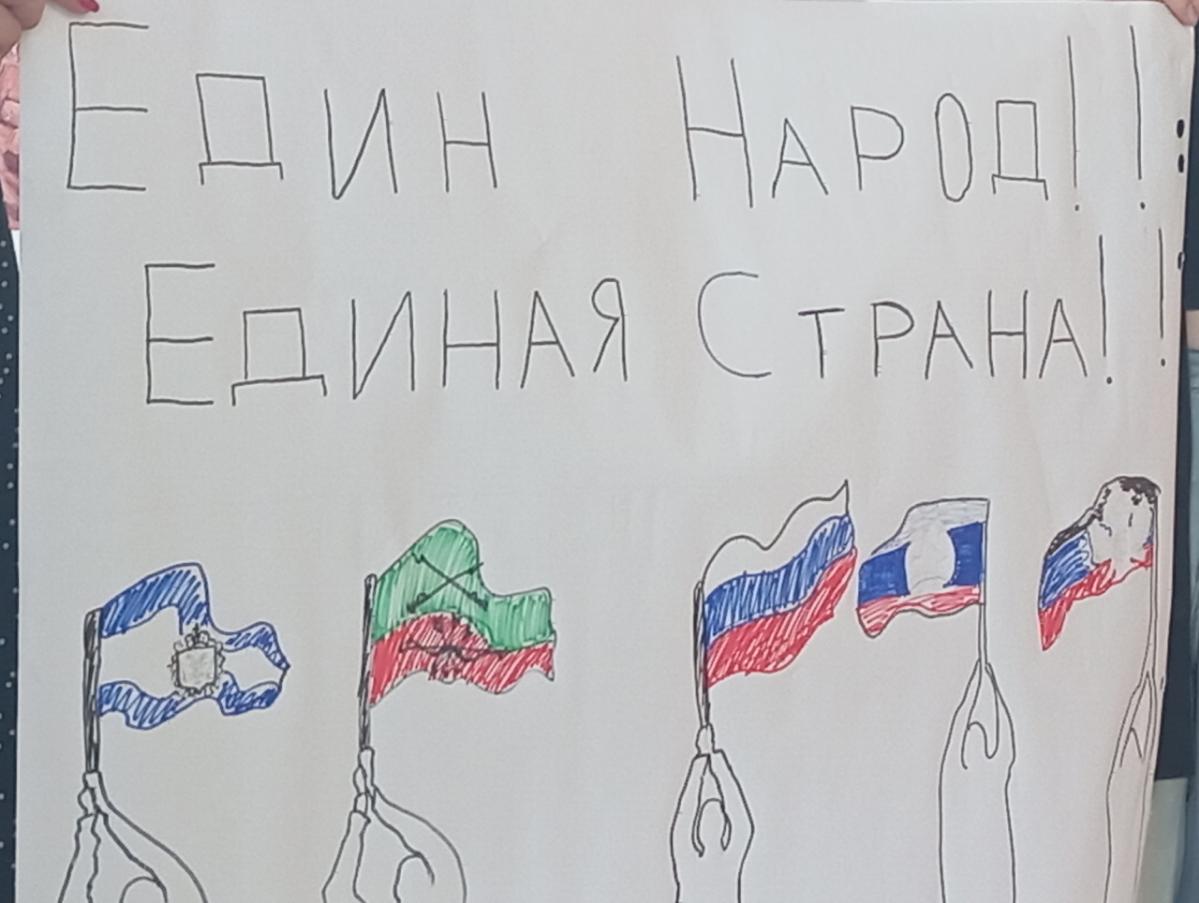 Един Народ!!
Единая Страна!!